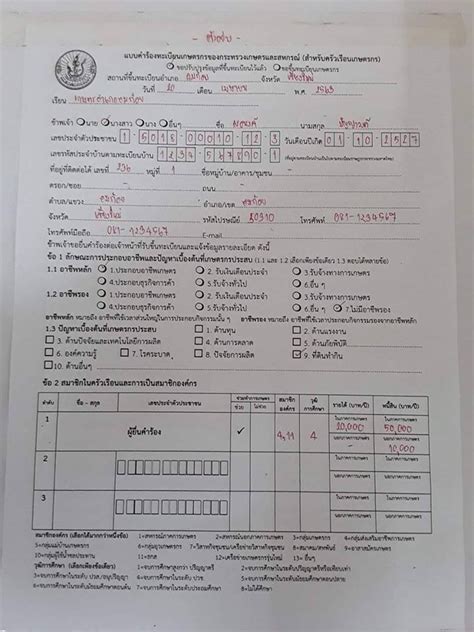 ตัวอย่าง
แบบคำร้องทะเบียนเกษตรกรของกระทรวงเกษตรและสหกรณ์ (สำหรับครัวเรือนเกษตรกร)
ขอปรับปรุงข้อมูลที่ขึ้นทะเบียนไว้แล้ว ขอขึ้นทะเบียนเกษตรกร
สถานที่ขึ้นทะเบียนอำเภอ อมก๋อย จังหวัด เชียงใหม่
วันที่ 20 เดือน เมษายน พ.ศ. 2563
เรียน
ข้าพเจ้า นาย นางสาว นาง อื่นๆ ชื่อ นามสกุล
เลขประจำตัวประชาชน 1-5018-00010-12-3 วันเดือนปีเกิด 01-10-2527
เลขรหัสประจำบ้านตามทะเบียนบ้าน 1234-567890-1
ที่อยู่ที่ติดต่อได้ เลขที่ 236 หมู่ที่ 1 ชื่อหมู่บ้าน/อาคาร/ชุมชน -
ตรอก/ซอย - ถนน -
ตำบล/แขวง อมก๋อย อำเภอ/เขต อมก๋อย
จังหวัด เชียงใหม่ รหัสไปรษณีย์ 50310 โทรศัพท์ 081-1234567
โทรศัพท์มือถือ 081-1234567 E-mail
ข้าพเจ้าขอยื่นคำร้องต่อเจ้าหน้าที่รับขึ้นทะเบียนและแจ้งข้อมูลรายละเอียด ดังนี้
ข้อ 1 ลักษณะการประกอบอาชีพและปัญหาเบื้องต้นที่เกษตรกรประสบ (1.1 และ 1.2 เลือกเพียงข้อเดียว 1.3 ตอบได้หลายข้อ)
1.1 อาชีพหลัก 1.ประกอบอาชีพเกษตร 2. รับเงินเดือนประจำ 3.รับจ้างทางการเกษตร
4.ประกอบธุรกิจการค้า 5.รับจ้างทั่วไป 6.อื่น ๆ
1.2 อาชีพรอง 1.ประกอบอาชีพเกษตร 2. รับเงินเดือนประจำ 3.รับจ้างทางการเกษตร
4.ประกอบธุรกิจการค้า 5.รับจ้างทั่วไป 6.อื่น ๆ 7.ไม่มีอาชีพรอง
อาชีพหลัก หมายถึง อาชีพที่ใช้เวลาส่วนใหญ่ในการประกอบกิจกรรมนั้น ๆ อาชีพรอง หมายถึง อาชีพที่ใช้เวลาในการประกอบกิจกรรมรองจากอาชีพหลัก
1.3 ปัญหาเบื้องต้นที่เกษตรกรประสบ 1. ด้านทุน 2. ด้านแรงงาน
3. ด้านปัจจัยและเทคโนโลยีการผลิต 4. ด้านการตลาด 5. ด้านภัยพิบัติ
6. องค์ความรู้ 7. โรคระบาด 8. ปัจจัยการผลิต 9. ที่ดินทำกิน
10. ด้านอื่นๆ
ข้อ 2 สมาชิกในครัวเรือนและการเป็นสมาชิกองค์กร
ลำดับ ชื่อ - สกุล เลขประจำตัวประชาชน ช่วยทำการเกษตร ช่วย ไม่ช่วย สมาชิกองค์กร วุฒิการศึกษา รายได้ (บาท/ปี) หนี้สิน (บาท/ปี)
1 ผู้ยื่นคำร้อง ✓ 4,11 4 ในภาคการเกษตร 20,000 ในภาคการเกษตร 50,000
นอกภาคการเกษตร - นอกภาคการเกษตร 10,000
2 ในภาคการเกษตร ในภาคการเกษตร
นอกภาคการเกษตร นอกภาคการเกษตร
3 ในภาคการเกษตร ในภาคการเกษตร
นอกภาคการเกษตร นอกภาคการเกษตร
สมาชิกองค์กร (เลือกได้มากกว่าหนึ่งข้อ) 1=สหกรณ์ภาคการเกษตร 2=สหกรณ์นอกภาคการเกษตร 3=กลุ่มเกษตรกร 4=กลุ่มส่งเสริมอาชีพการเกษตร
5=กลุ่มแม่บ้านเกษตรกร 6=กลุ่มยุวเกษตรกร 7=วิสาหกิจชุมชน/เครือข่ายวิสาหกิจชุมชน 8=สมาคม/สหพันธ์ 9=อาสาสมัครเกษตร
10=กลุ่มผู้ใช้น้ำชลประทาน
วุฒิการศึกษา (เลือกเพียงข้อเดียว)